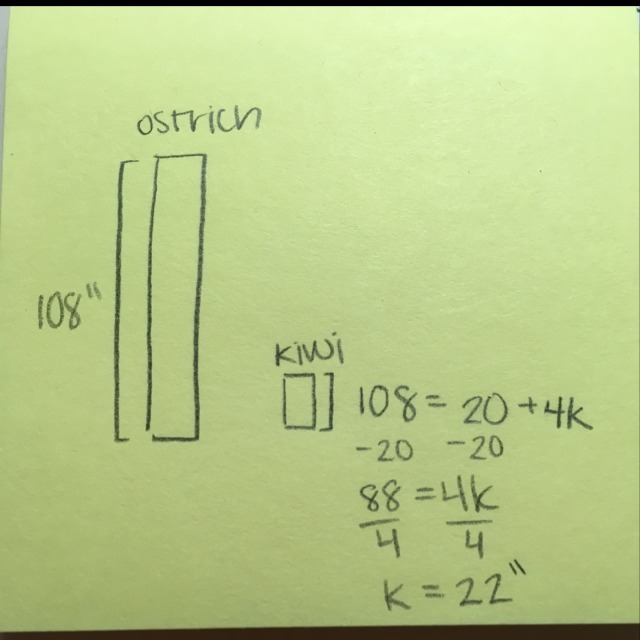 ostrich
108"
kiwi
108 = 20 + 4k
-20 -20
88 = 4k
4 4
k = 22"